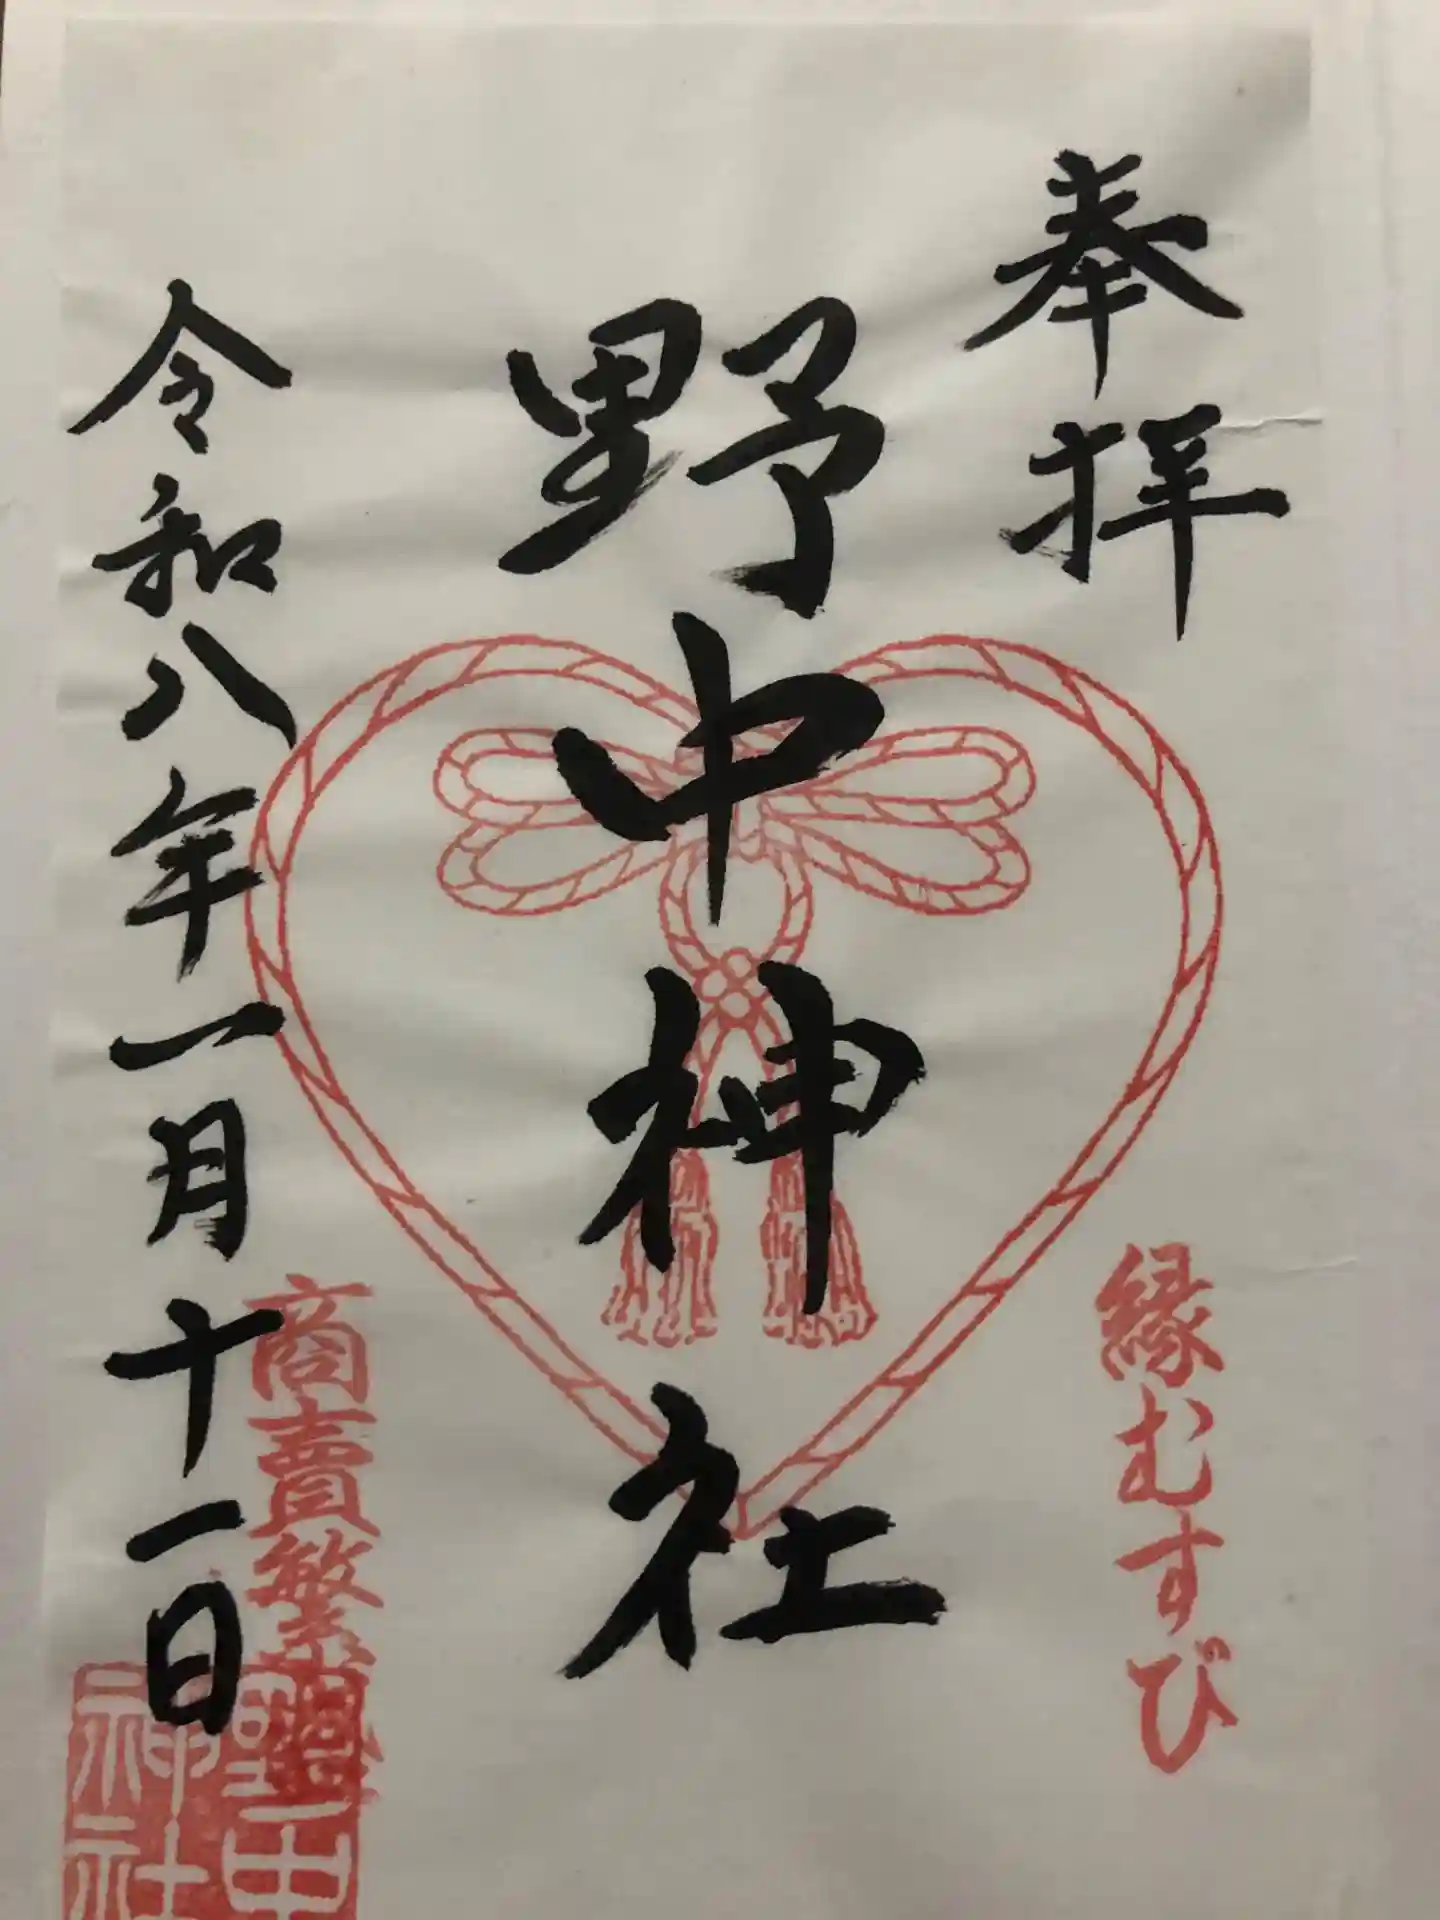 奉拝
縁むすび
野中神社
商賣繁
令和八年一月十一日
野中
神社